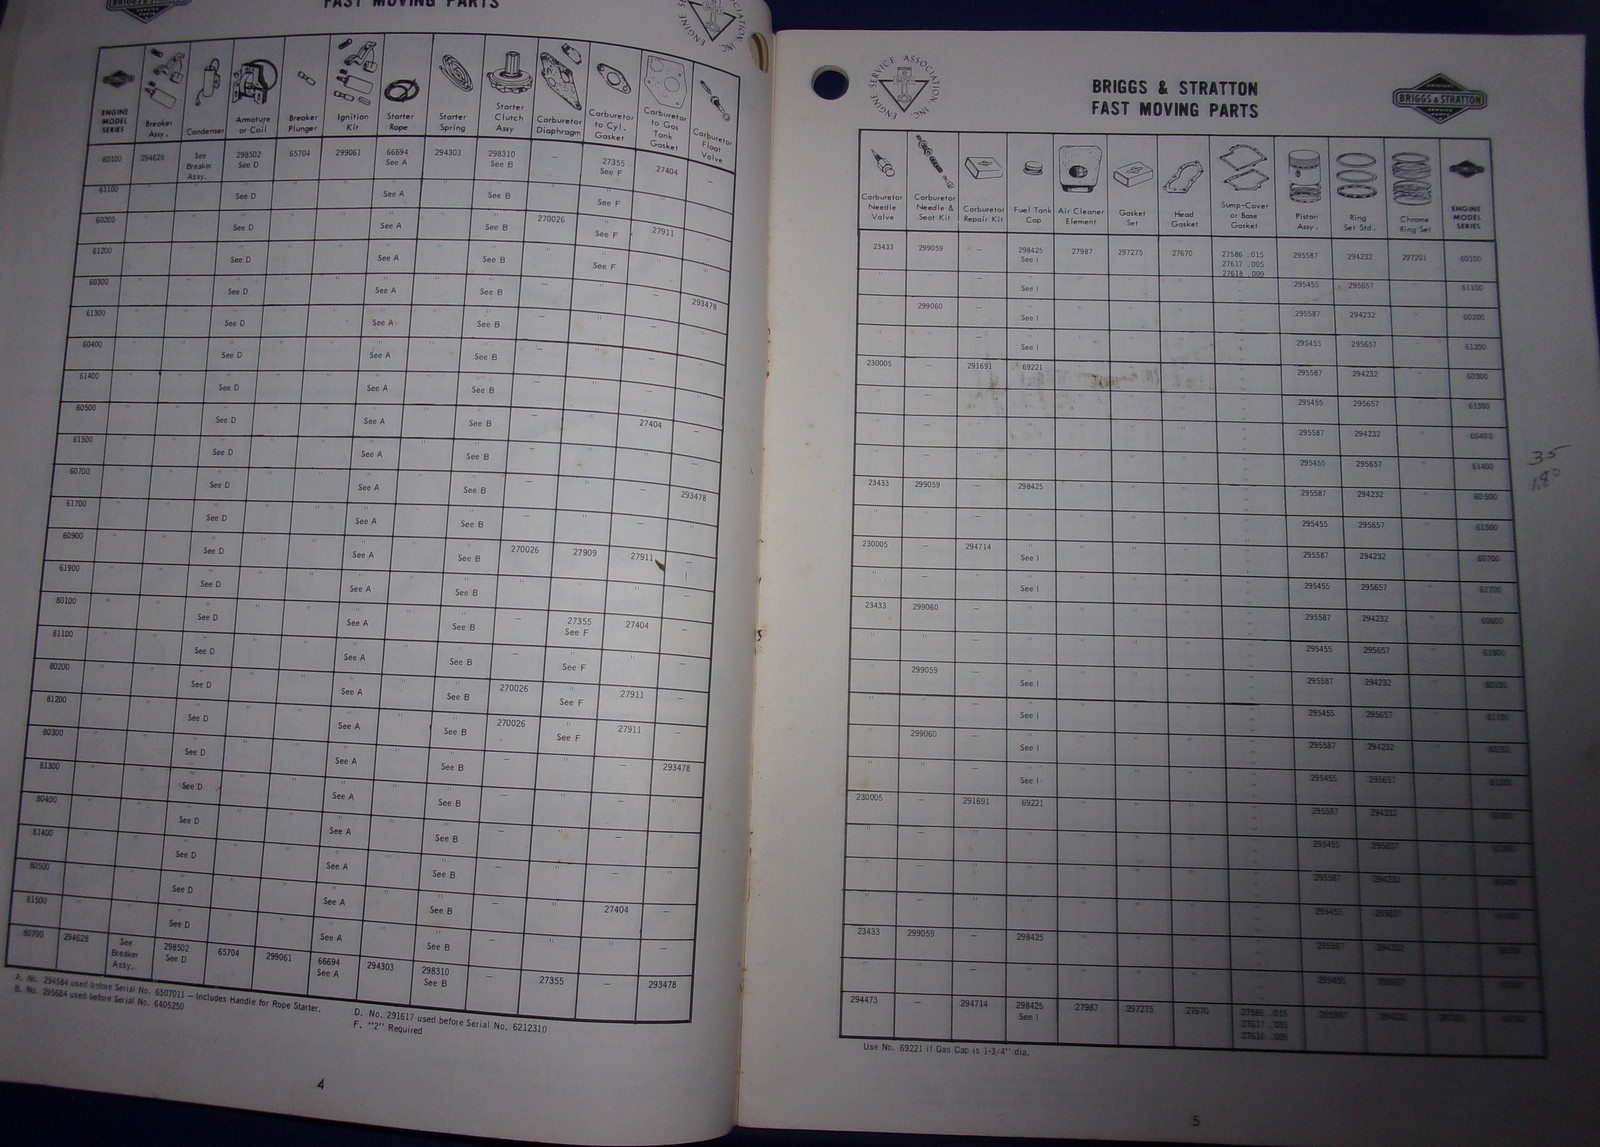 FAST MOVING PARTS
ENGINE SERVICE ASSOCIATION INC
ENGINE MODEL SERIES
Breaker Assy.
Condenser
Armature or Coil
Breaker Plunger
Ignition Kit
Starter Rope
Starter Spring
Starter Clutch Assy
Carburetor Diaphragm
Carburetor to Cyl. Gasket
Carburetor to Gas Tank Gasket
Carburetor Float Valve
60100 294628 See Breaker Assy. 298502 See D 65704 299061 66694 See A 294303 298310 See B — 27355 See F 27404 —
61100 See D See A See B See F
60200 See D See A See B 270026 See F 27911
61200 See D See A See B See F
60300 See D See A See B — 293478
61300 See D See A See B
60400 See D See A See B
61400 See D See A See B
60500 See D See A See B 27404 —
61500 See D See A See B
60700 See D See A See B 293478
61700 See D See A See B
60900 See D See A See B 270026 27909 27911 —
61900 See D See A See B
80100 See D See A See B — 27355 See F 27404 —
81100 See D See A See B See F
80200 See D See A See B 270026 See F 27911 —
81200 See D See A See B 270026 See F 27911 —
80300 See D See A See B — — 293478
81300 See D See A See B
80400 See D See A See B
81400 See D See A See B
80500 See D See A See B 27404 —
81500 See D See A See B
80700 294628 See Breaker Assy. 298502 See D 65704 299061 66694 See A 294303 298310 See B — 27355 — 293478
A. No. 294584 used before Serial No. 6507011 — Includes Handle for Rope Starter.
B. No. 295684 used before Serial No. 6405250
D. No. 291617 used before Serial No. 6212310
F. "2" Required
4
ENGINE SERVICE ASSOCIATION INC
BRIGGS & STRATTON
FAST MOVING PARTS
BRIGGS & STRATTON
Carburetor Needle Valve
Carburetor Needle & Seat Kit
Carburetor Repair Kit
Fuel Tank Cap
Air Cleaner Element
Gasket Set
Head Gasket
Sump-Cover or Base Gasket
Piston Assy.
Ring Set Std.
Chrome Ring Set
ENGINE MODEL SERIES
23433 299059 — 298425 See I 27987 297275 27670 27586 .015 27617 .005 27618 .009 295587 294232 297201 60100
See I 295455 295657 61100
299060 See I 295587 294232 60200
See I 295455 295657 61200
230005 — 291691 69221 295587 294232 60300
295455 295657 61300
295587 294232 60400
295455 295657 61400
23433 299059 — 298425 295587 294232 60500
295455 295657 61500
230005 — 294714 See I 295587 294232 60700
See I 295455 295657 61700
23433 299060 — 295587 294232 60900
295455 295657 61900
299059 See I 295587 294232
See I 295455 295657
299060 See I 295587 294232
See I 295455 295657
230005 — 291691 69221 295587 294232
295455 295657
295587 294232
295455 295657
23433 299059 — 298425 295587 294232
295455 295657
294473 — 294714 298425 See I 27987 297275 27670 27586 .015 27617 .005 27618 .009 295587 294232
Use No. 69221 if Gas Cap is 1-3/4" dia.
35
1.80
5